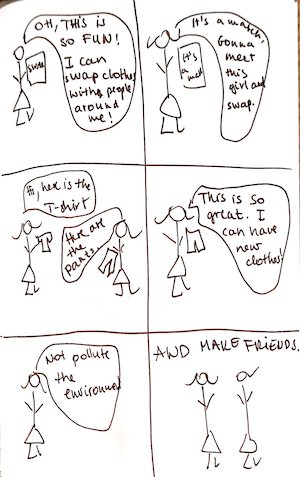 OH, THIS is
so FUN!
I can
swap clothes
with people
around
me!
It's a match.
Gonna
meet
this
girl and
swap.
It's
a
Hi, here is the
T-shirt
Here are
the
pants.
This is so
great. I
can have
new
clothes!
Not pollute
the
environment
AND MAKE FRIENDS.